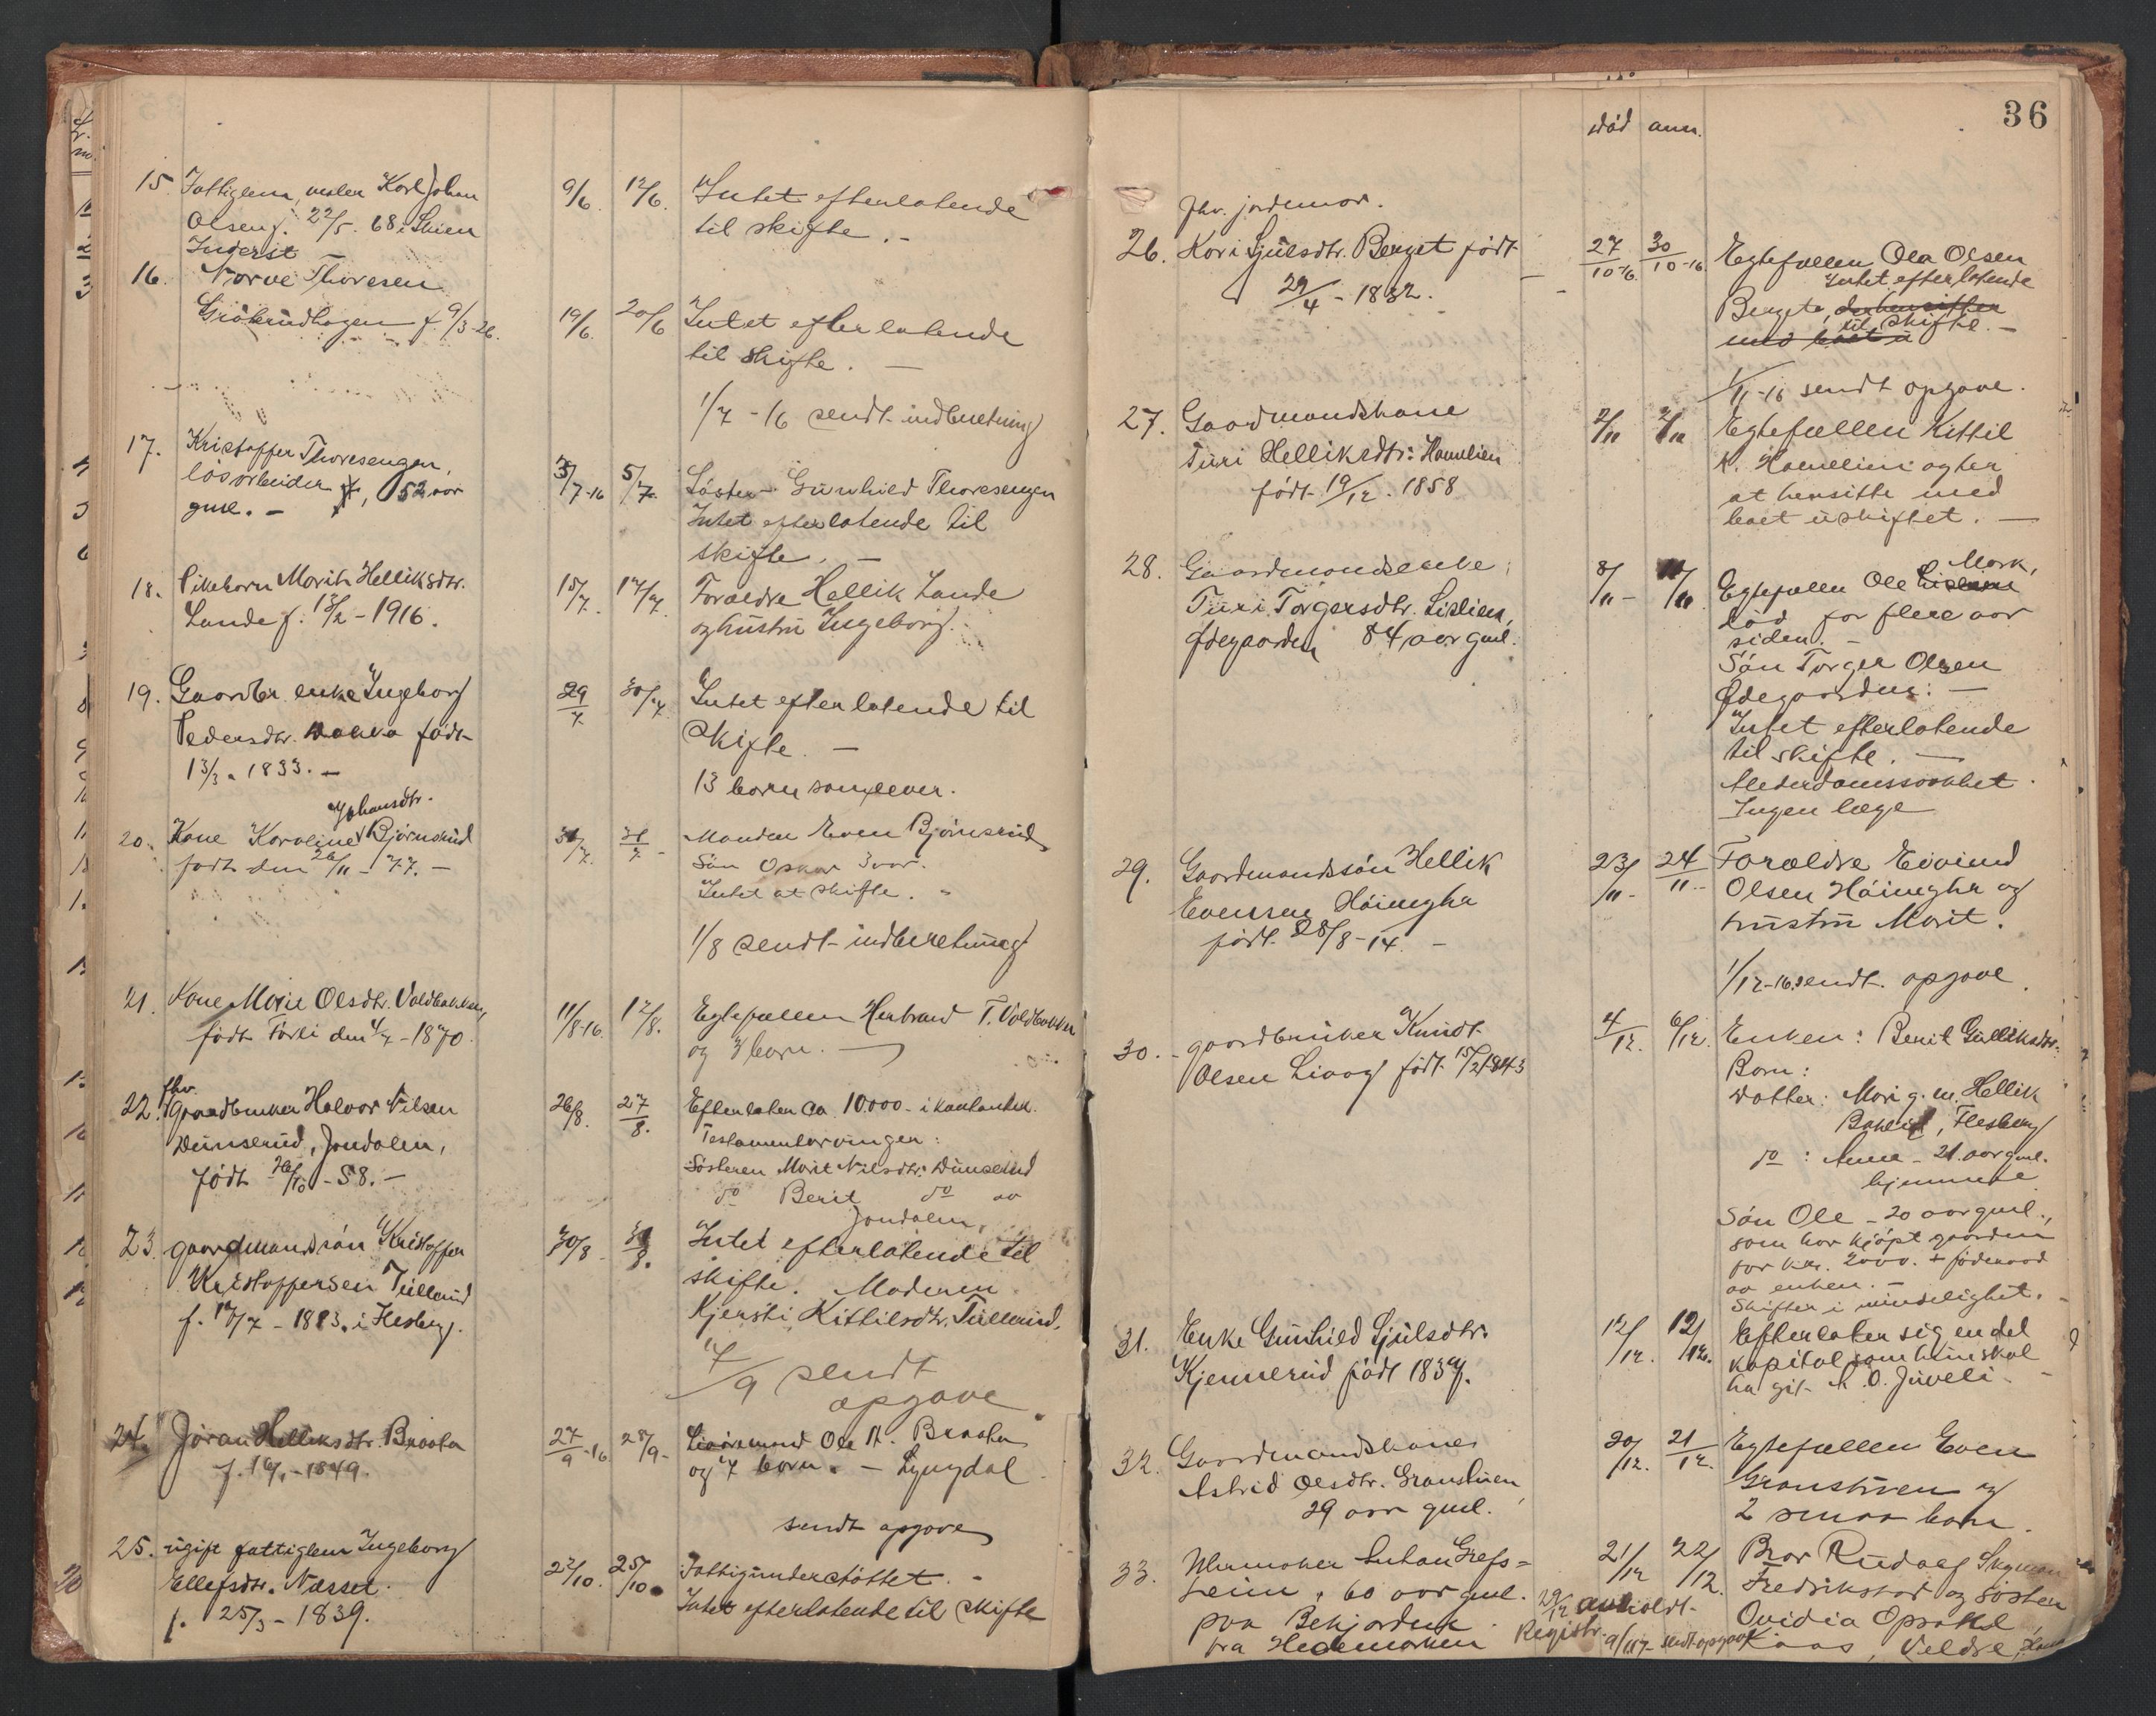 15. Fattiglem, Karl Johan 9/6. 12/6. Intet efterlatende
Olsen f. 22/5. 68 i Skien til skifte. -
Ingerst
16. Narve Thoresen
f. 9/3-26. 19/6. 20/6 Intet efterlatende
til skifte. -
1/7 - 16 sendt indberetning
17. Kristoffer Thoresengen,
løsarbeider, 52 aar 3/7-16 5/7 Søster Gunhild Thoresengen
gml. - Intet efterlatende til
skifte. -
18. Pikebarn Marit Helliksdtr. 15/7. 17/7 Forældre Hellik Lande
Lande f. 13/2 - 1916. og hustru Ingeborg.
19. Gaardbr. enke Ingeborg 29/7. 30/7 Intet efterlatende til
Pedersdtr. født skifte. -
13/3. 1833. - 13 barn som lever.
Johansdtr.
20. Kone Karoline Bjørnsrud 30/7. 31/7 - Manden Even Bjørnsrud
født den 26/11 - 77. - Søn Oskar 3 aar.
Intet at skifte. -
1/8 sendt indberetning
21. Kone Marie Olsdtr. Voldbakken, 11/8-16. 12/8. Egtefællen Herbrand T. Voldbakken
født den 4/7 - 1870. og 3 barn. -
fhv.
22. gaardbruker Halvor Nilsen 26/8. 27/8. Efterlater ca 10.000 - i kontanter.
Dunserud, Jondalen, Testamentarvinger:
født 26/10 - 58. - Søsteren Marit Nilsdtr. Dunserud
do Berit do av
Jondalen.
23. gaardmandssøn Kristoffer 30/8 31/8. Intet efterlatende til
Kristoffersen Tullerud skifte. Moderen
f. 17/7 - 1893. i Flesberg. Kjersti Kittilsdtr. Tullerud.
4/9 sendt
opgave.
24. Jøran Helliksdtr. Braata 27/9-16 28/9 - Ole H. Braata
f. 16/1 - 1849. og 7 barn. - Lyngdal.
sendt opgave
25. ugift fattiglem Ingeborg
Ellefsdtr. Næsset. 23/10. 25/10. Fattigunderstøttet. -
f. 25/3 - 1839. Intet efterlatende til skifte
36
død anm.
fhv. jordmor.
26. Kari Sjulsdtr. Berget født 27/10-16. 30/10-16. Egtefællen Ola Olsen
29/4 - 1832. Intet efterlatende
Berget,
til skifte. -
1/11-16 sendt opgave.
27. Gaardmandskone 2/11 7/11 Egtefællen Kittil
Turi Helliksdtr. Hamelien K. Hamelien agter
født 19/12. 1858 at hensitte med
boet uskiftet. -
Mork,
28. Gaardmandsenke 8/11 - 11/11 Egtefællen Ole Lislien
Turi Torgersdtr. Lislien, død for flere aar
Ødegaarden 84 aar gml. siden. -
Søn Torger Olsen
Ødegaarden. -
Intet efterlatende
til skifte. -
Alderdomssvakhet.
Ingen læge
29. Gaardmandssøn Hellik 23/11 - 24/11 - Forældre Eivind
Evensen Høimyhr Olsen Høimyhr og
født 28/8 - 14. - hustru Marit.
1/12-16 sendt opgave.
30. - gaardbruker Knudt 4/12. 6/12. Enken: Berit Gulliksdtr.
Olsen Liaag født 15/2 1843 Barn:
Datter: Mari g. m. Hellik
Flesberg
do : Anne - 21 aar gml.
hjemme
Søn Ole - 20 aar gml.,
som har kjøpt gaarden
for kr. 2000. + føderaad
av enken. -
Skifter i mindelighet. -
31. Enke Gunhild Sjulsdtr. 12/12. 12/12. Efterlater sig en del
Kjennerud født 1839. kapital som hun skal
ha git A. O. Juveli. -
32. Gaardmandskone 20/12. 21/12. Egtefællen Even
Astrid Olsdtr. Granstuen, Granstuen og
29 aar gml. 2 smaa barn.
33. Urmaker Johan Grefs= 21/12 22/12. Bror Rudolf
heim, 60 aar gml. 29/12 avholdt Fredrikstad og søster
paa Bekjorden Registr. Ovidia Opsahl,
fra Hedemarken 9/1 17 - sendt opgave Kaas, Veldre,